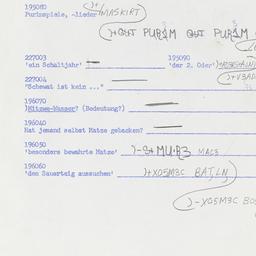 195080 )+MASKIRT
Purimspiele, -lieder
)+GUT PURIM GUT PURIM
227003 195090
'ein Schaltjahr' 'der 2. Oder'
227004
"Schewat is kein ..."
196070
Mitzwe-Wasser? (Bedeutung?)
196040
Hat jemand selbst Matze gebacken?
196050
'besonders bewahrte Matze' )-S+MU:R3 MAC3
196060
'den Sauerteig aussuchen' )+XO5M3C BAT,LN)
)-XO5M3C BO